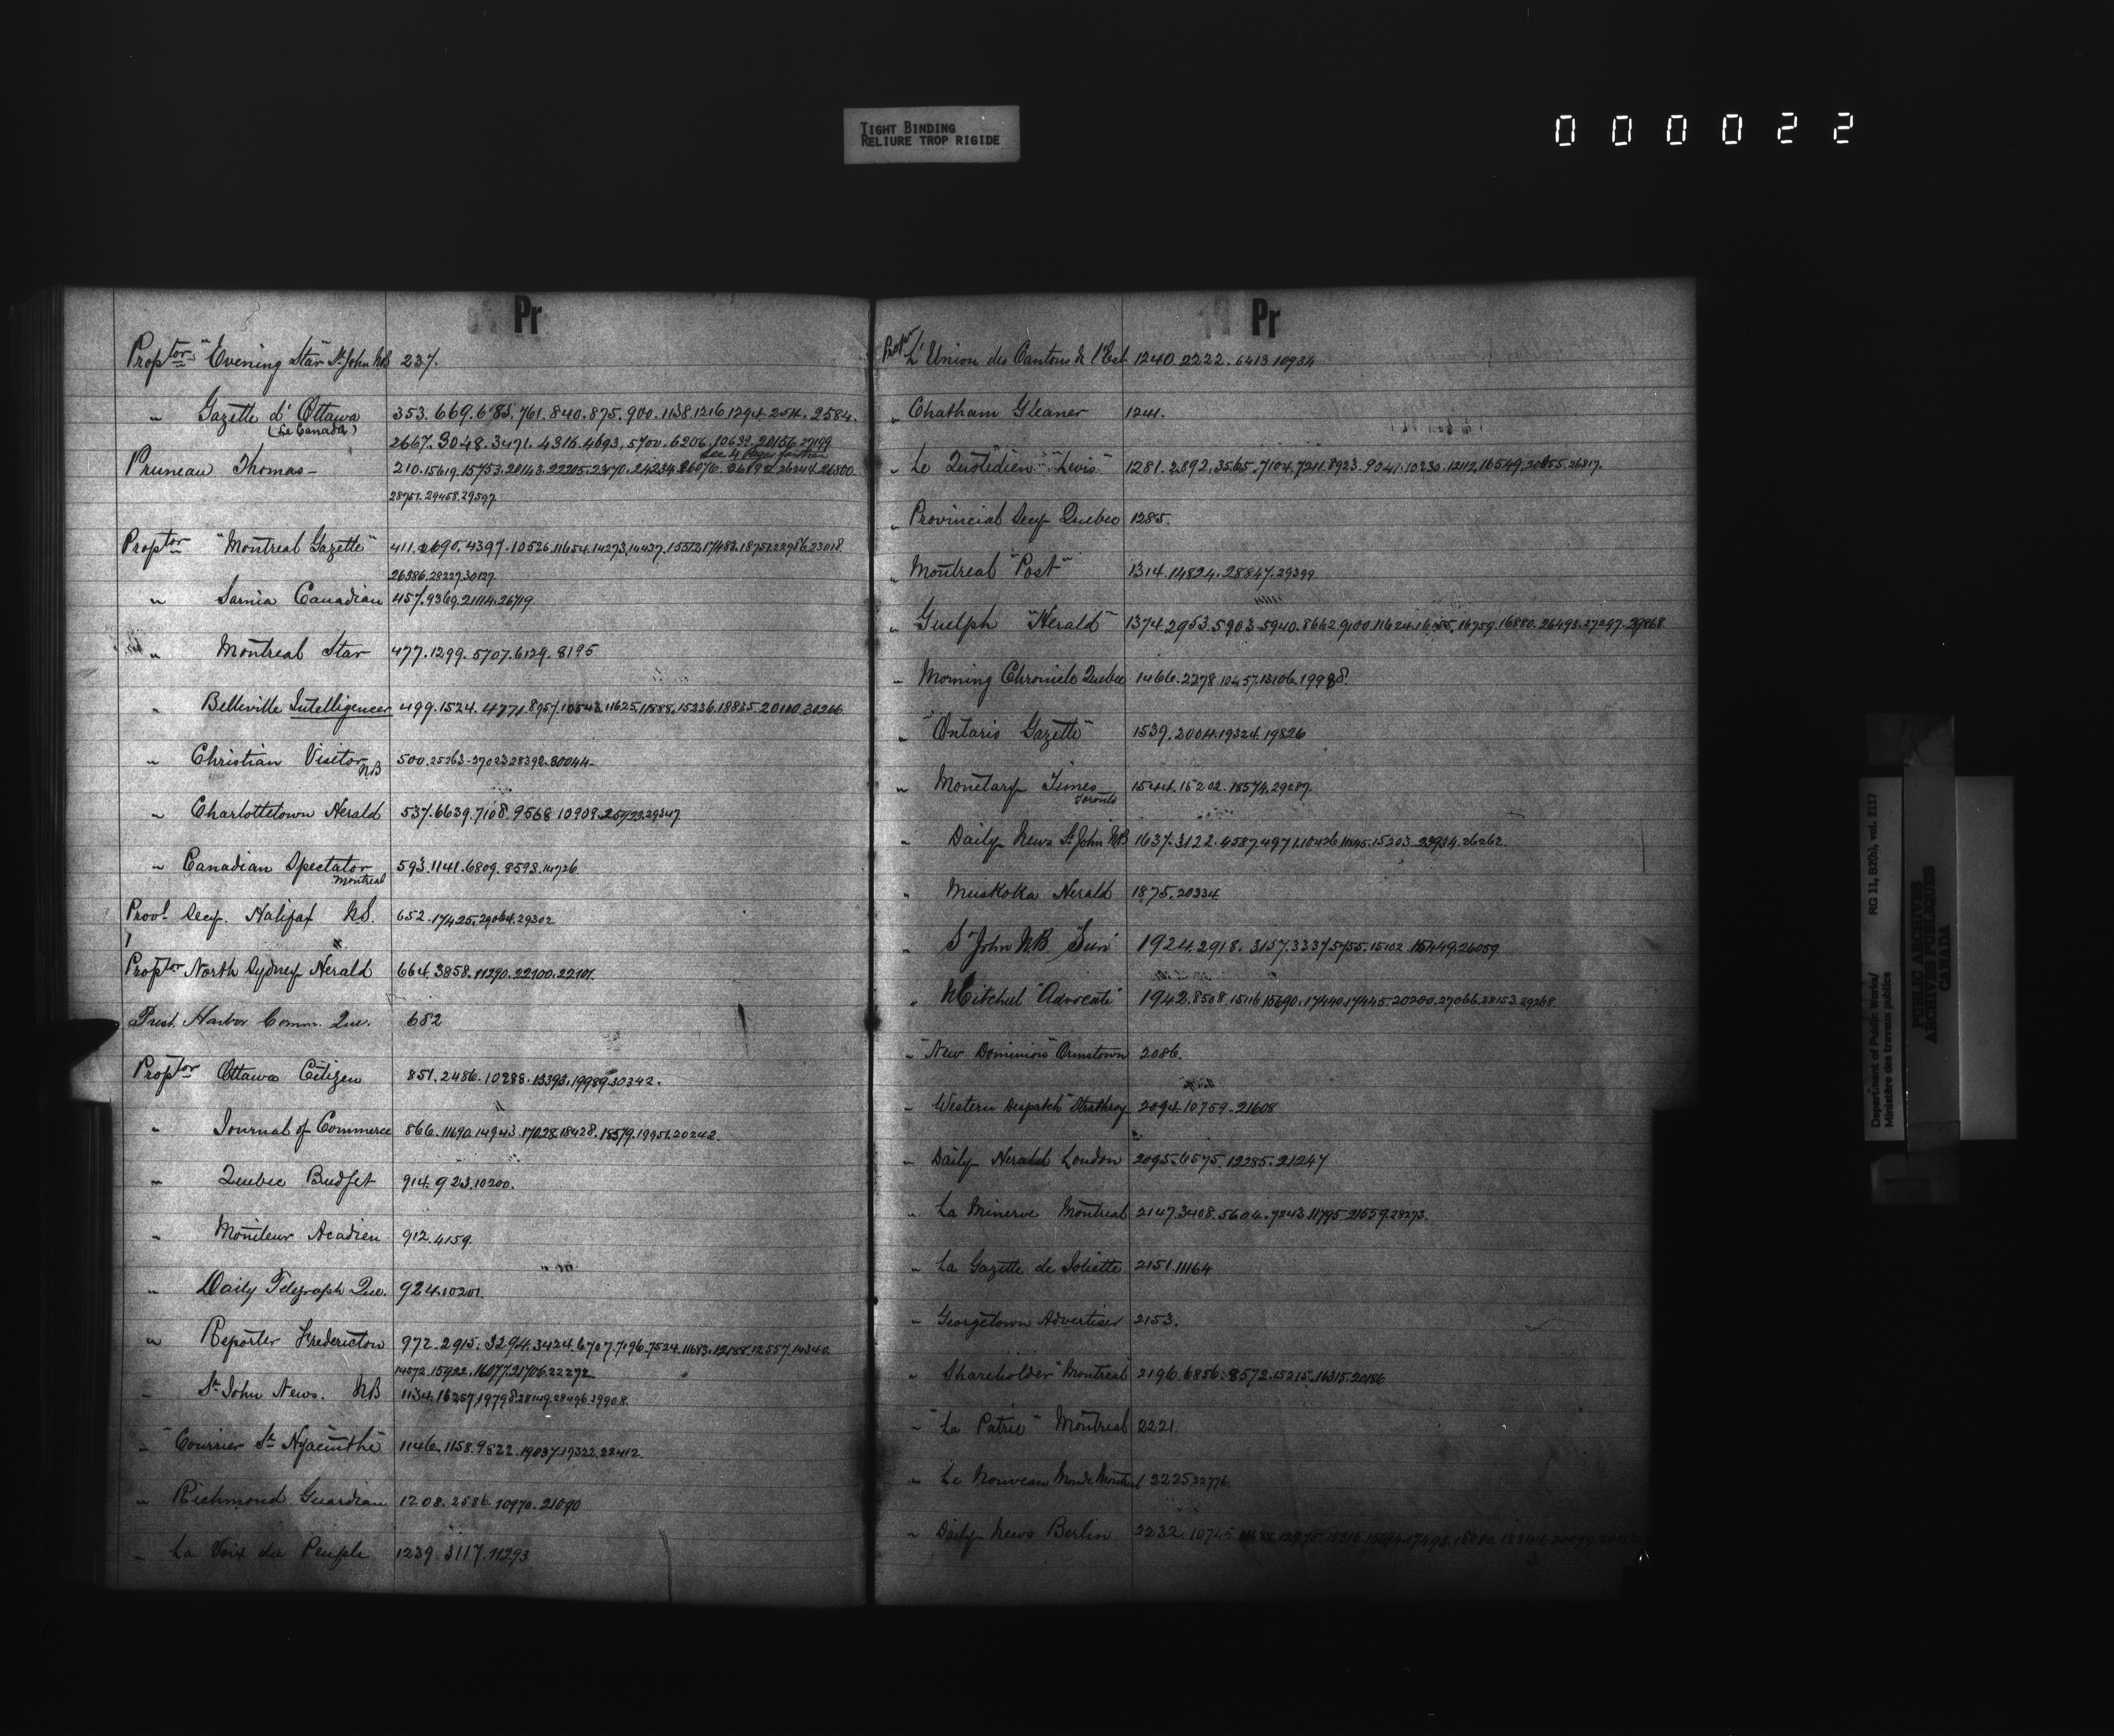 TIGHT BINDING
RELIURE TROP RIGIDE
000022
Pr
Proptor "Evening Star" St John NB 237.
" Gazette d'Ottawa 353.669.685.761.840.875.900.1138.1216.1294.2514.2584.
(Le Canada) 2667.3048.3471.4316.4693.5700.6206.10639.20156.27199
See 4 Pages further
Pruneau Thomas - 210.15619.15753.20143.22215.2370.24234.26076.26192.26244.26800
28751.29458.29597
Proptor "Montreal Gazette" 411.2690.4397.10526.11654.14273.14437.15512.17483.18751.22986.23018
26386.28227.30127
" Sarnia Canadian 457.9369.21114.26719
" Montreal Star 477.1299.5707.6129.8195
" Belleville Intelligencer 499.1524.4771.8957.10543.11625.11888.15236.18835.20100.30266
" Christian Visitor NB 500.25263-27023.28392.30044-
" Charlottetown Herald 537.6639.7108.9568.10909.25723.29347
" Canadian Spectator 593.1141.6809.8598.14726
Montreal
Provl Secy. Halifax N.S. 652.17425.29064.29302
Proptor North Sydney Herald 664.3858.11290.22100.22101.
Prest. Harbor Comm. Que. 682
Proptor Ottawa Citizen 851.2486.10288.13393.19989.30342.
" Journal of Commerce 866.11690.14943.17028.18428.18579.19951.20242.
" Quebec Budget 914.923.10200.
" Moniteur Acadien 912.4159.
" Daily Telegraph Que. 924.10201.
" Reporter Fredericton 972.2915.3294.3424.6707.7196.7524.11683.12188.12557.14340
14572.15922.16077.21706.22272
" St John News. NB 1134.16257.19798.28149.28496.29908.
" "Courrier St Hyacinthe" 1146.1158.9822.19037.19322.22412.
" Richmond Guardian 1208.2586.10970.21090
" La Voix du Peuple 1239.3117.11293
Pr
Propr L'Union des Cantons de l'Est 1240.2222.6413.10934
" Chatham Gleaner 1241.
" Le Quotidien "Levis" 1281.2892.3565.7104.7211.8923.9041.10230.12112.16549.20855.26317.
" Provincial Secy Quebec 1285.
" Montreal "Post" 1314.14824.28847.29399
" Guelph "Herald" 1374.2953.5903-5940.8662.9100.11624.16155.16759.16880.26493.27297.29868
" Morning Chronicle Quebec 1466.2278.10457.13106.19998.
" "Ontario Gazette" 1539.2004.19324.19826
" Monetary Times 1544.15202.18574.29287.
Toronto
" Daily News St John NB 1637.3122.4587.4971.10426.11645.15303.23934.26262.
" Muskoka Herald 1875.20334
" St John N.B "Sun" 1924.2918.3157.3337.5755.15102.15449.26059
" Mitchel "Advocate" 1942.8508.15116.15690.17440.17445.20200.27066.28153.29268.
" "New Dominion" Ormstown 2086.
" Western Despatch" Strathroy 2094.10759-21608
" Daily Herald London 2095.6575.12285.21247
" La Minerve Montreal 2147.3408.5604.7243.11795.21559.28273.
" La Gazette de Joliette 2151.11164
" Georgetown Advertiser 2153.
" Shareholder "Montreal" 2196.6856.8572.15215.16315.20186
" "La Patrie" Montreal 2221.
" Le Nouveau Monde Montreal 2225.22776
" Daily News Berlin 2232.10745
Department of Public Works/ RG 11, B2(b), vol. 2117
Ministère des travaux publics
PUBLIC ARCHIVES
ARCHIVES PUBLIQUES
CANADA